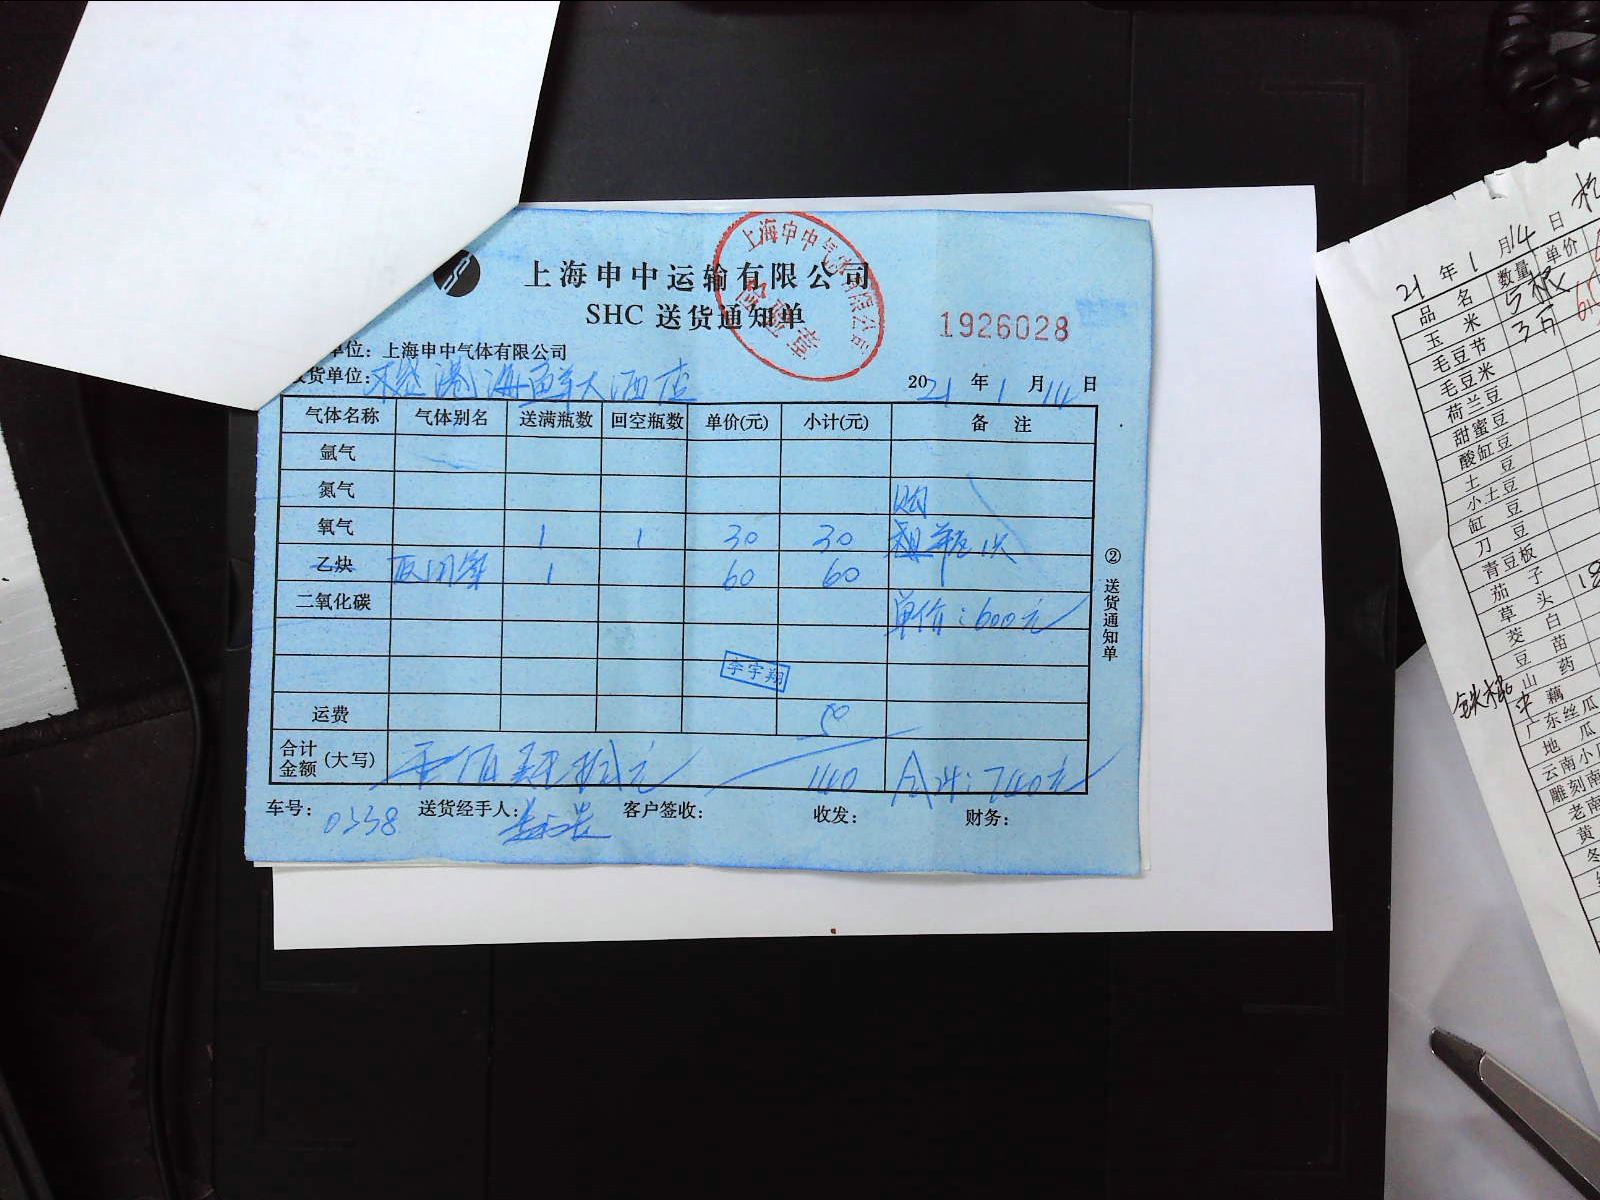 上海申中运输有限公司
SHC 送货通知单
1926028
单位：上海申中气体有限公司
货货单位：港海鲜大酒店
2021年1月14日
气体名称 气体别名 送满瓶数 回空瓶数 单价(元) 小计(元) 备 注
氩气
氮气 购
氧气 1 1 30 30 瓶1次
乙炔 1 60 60
二氧化碳 单价：600元
李宇翔
运费 50
合计金额 (大写) 140 合计：740元
车号：0338 送货经手人： 客户签收： 收发： 财务：
② 送货通知单
检验章
21年1月14日
品名 数量 单价
玉米
毛豆节
毛豆米
荷兰豆
甜蜜豆
酸缸豆
土豆
小土豆
缸豆
刀豆
青豆板
茄子
草头
茭白
豆苗
山药
铁棍
中藕
广东丝瓜
地瓜
云南小
雕刻南
老南
黄
冬